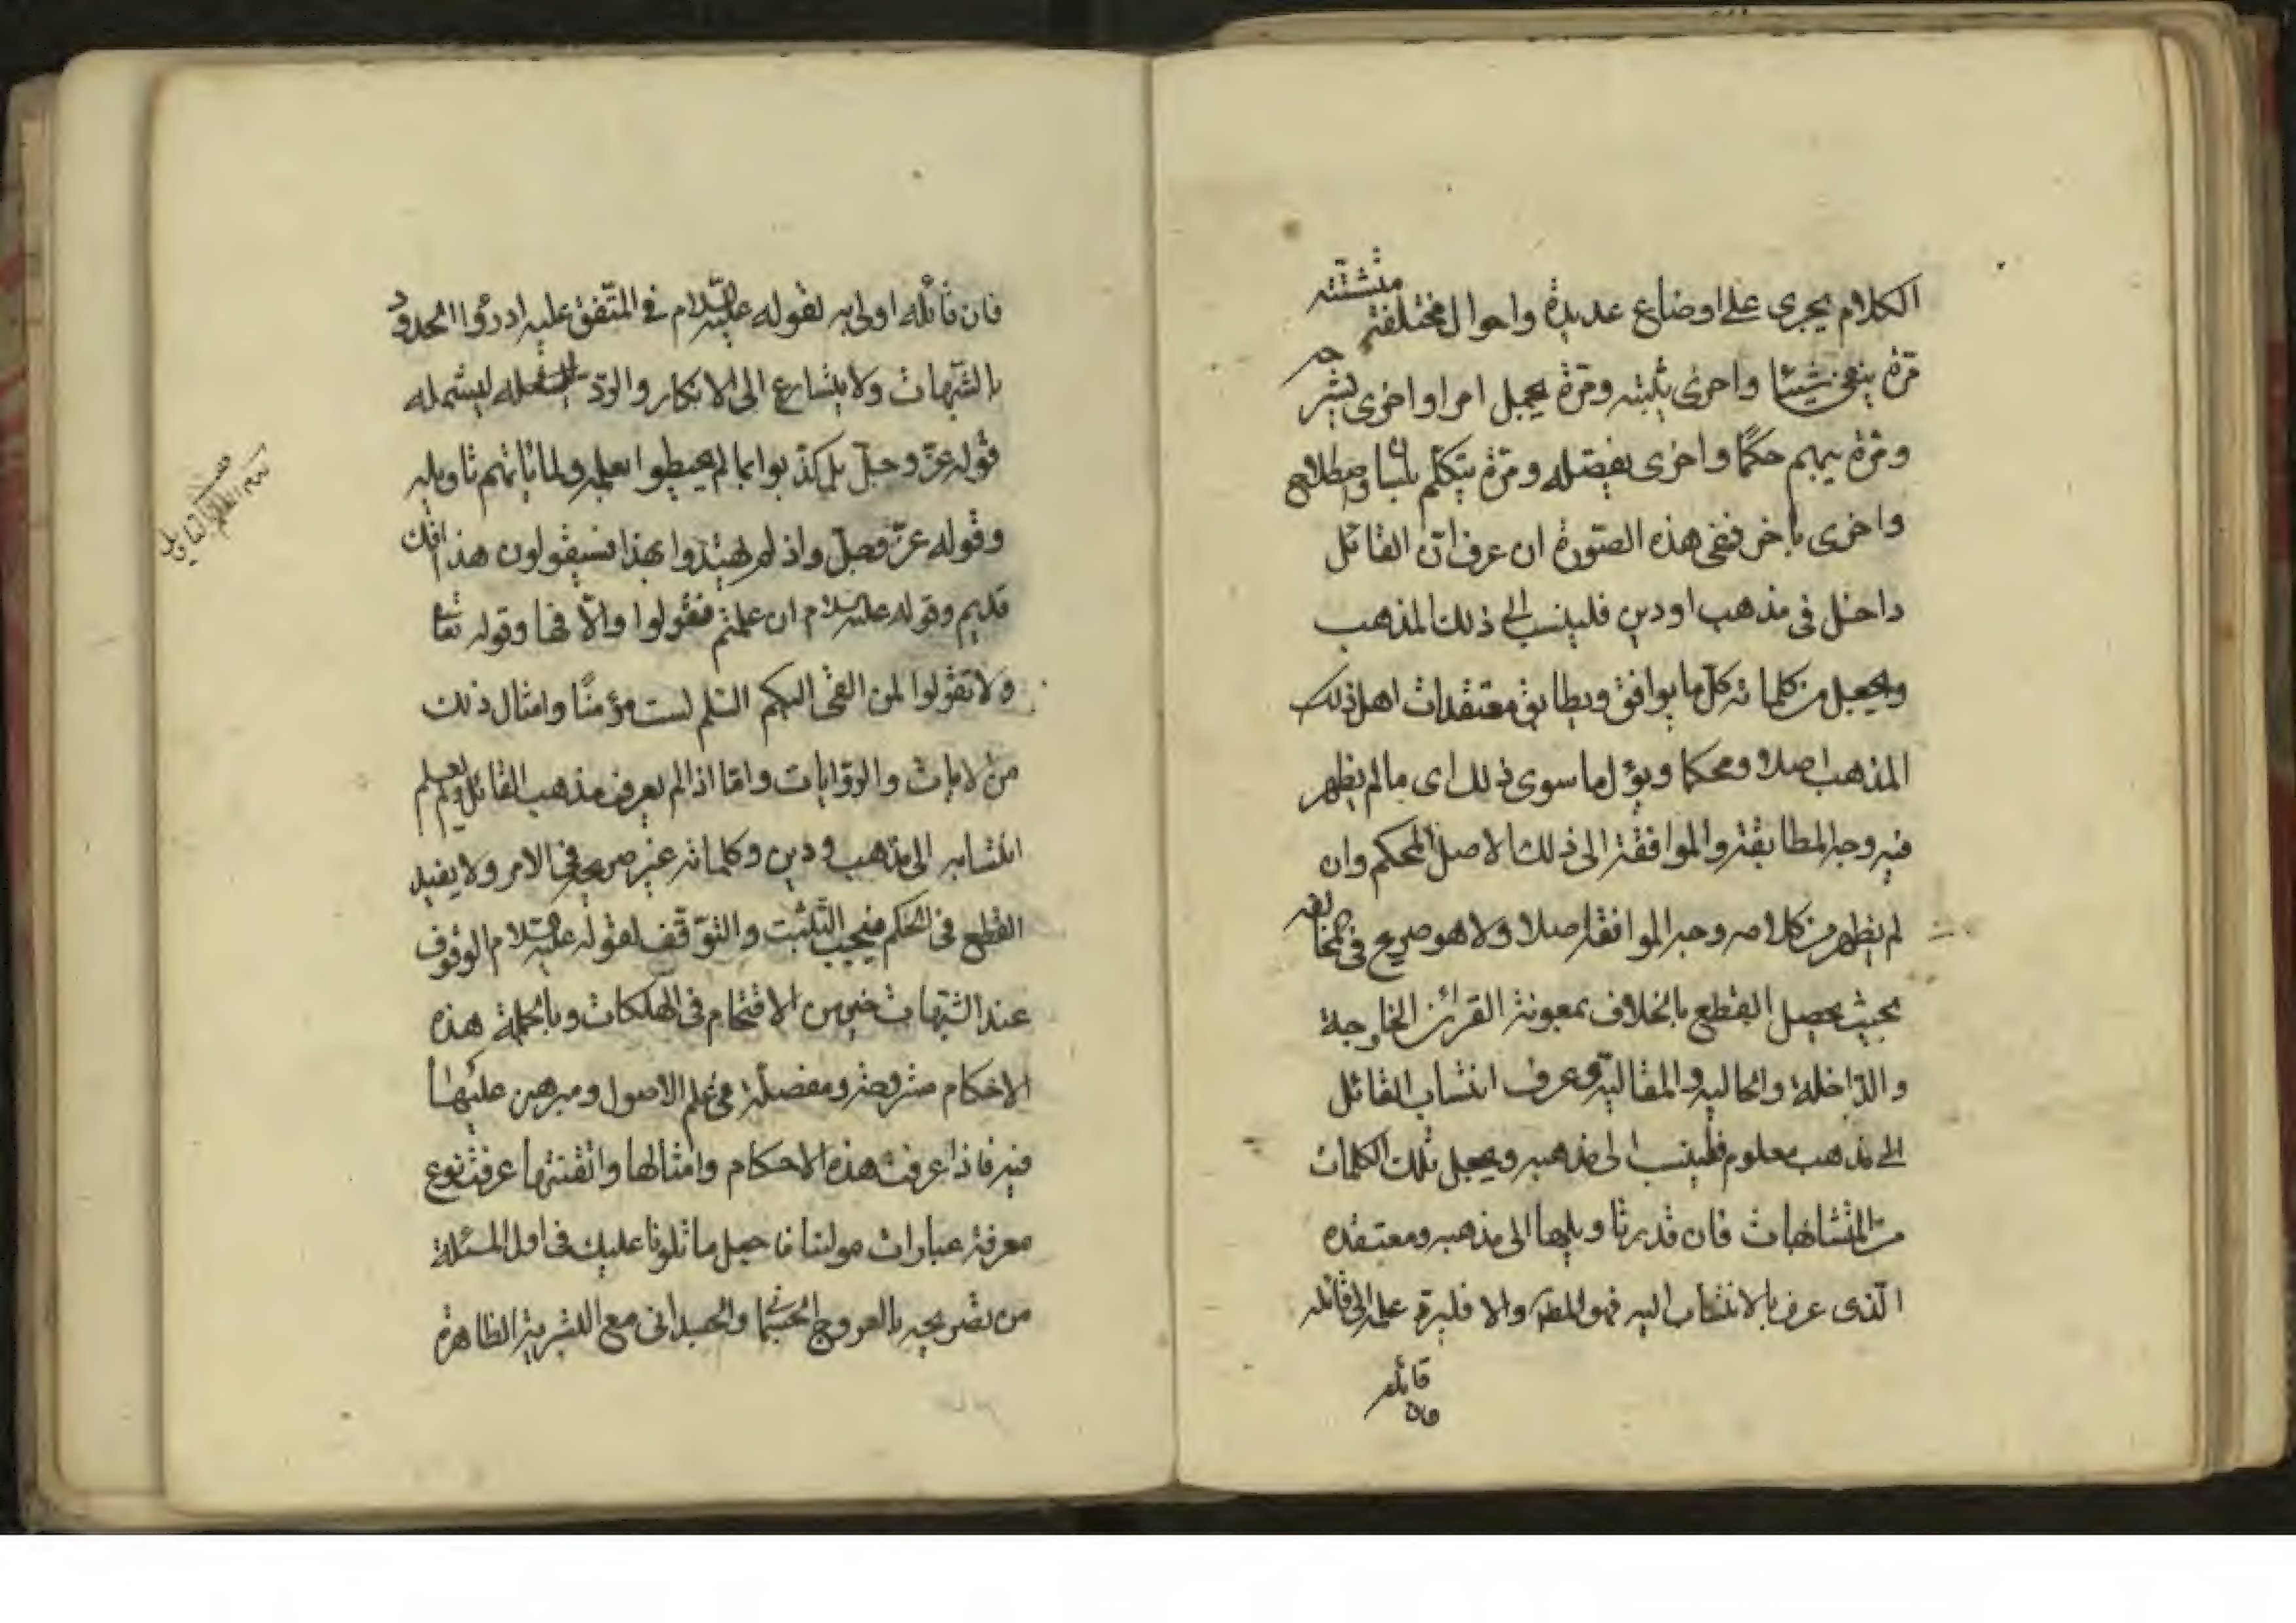 الكلام يجرى على اوضاع عديدة واحوال مختلفة متشتتة
مرة ينفى شيئا واخرى يثبته ومرة يجمل امرا واخرى يشرحه
ومرة يبهم حكما واخرى يفصله ومرة يتكلم بلسان واصطلاح
واخرى باخر ففى هذه الصورة ان عرف ان القائل
داخل فى مذهب او دين فلينسب الى ذلك المذهب
ويجعل من كلماته كل ما يوافق ويطابق معتقدات اهل ذلك
المذهب اصلا ومحكما ويؤل ما سوى ذلك اى ما لم يظهر
فيه وجه المطابقة والموافقة الى ذلك الاصل المحكم وان
لم يظهر من كلامه وجه الموافقة اصلا ولا هو صريح فى المخالفة
بحيث يحصل القطع بالخلاف بمعونة القرائن الخارجة
والداخلة والحالية والمقالية وعرف انتساب القائل
الى مذهب معلوم فلينسب الى مذهبه ويجعل تلك الكلمات
من المتشابهات فان قدر تاويلها الى مذهبه ومعتقده
الذى عرف بالانتساب اليه فهو المطلوب والا فليرد علمه الى قائله
قائله
فان
فان قائله اولى به لقوله عليه السلام فى المتفق عليه ادرؤا الحدود
بالشبهات ولا يتسارع الى الانكار والرد ليشمله
قوله عز وجل بل كذبوا بما لم يحيطوا بعلمه ولما ياتهم تاويله
وقوله عز وجل واذ لم يهتدوا بهذا فسيقولون هذا افك
قديم وقوله عليه السلام ان علمتم فقولوا والا فها وقوله تعا
ولا تقولوا لمن القى اليكم السلم لست مؤمنا وامثال ذلك
من الايات والروايات واما اذا لم يعرف مذهب القائل ولم يعلم
انتسابه الى مذهب ودين وكلماته غير صريح فى الامر ولا يفيد
القطع فى الحكم فيجب التثبت والتوقف لقوله عليه السلام الوقوف
عند الشبهات خير من الاقتحام فى الهلكات وبالجملة هذه
الاحكام مشروحة ومفصلة فى علم الاصول ومبرهن عليها
فيه فاذا عرفت هذه الاحكام وامثالها واتقنتها عرفت نوع
معرفة عبارات مولينا فاجعل ما تلونا عليك فى اول المسئلة
من تصريحه بالعروج الجسمانى والجسدانى مع البشرية الظاهرة